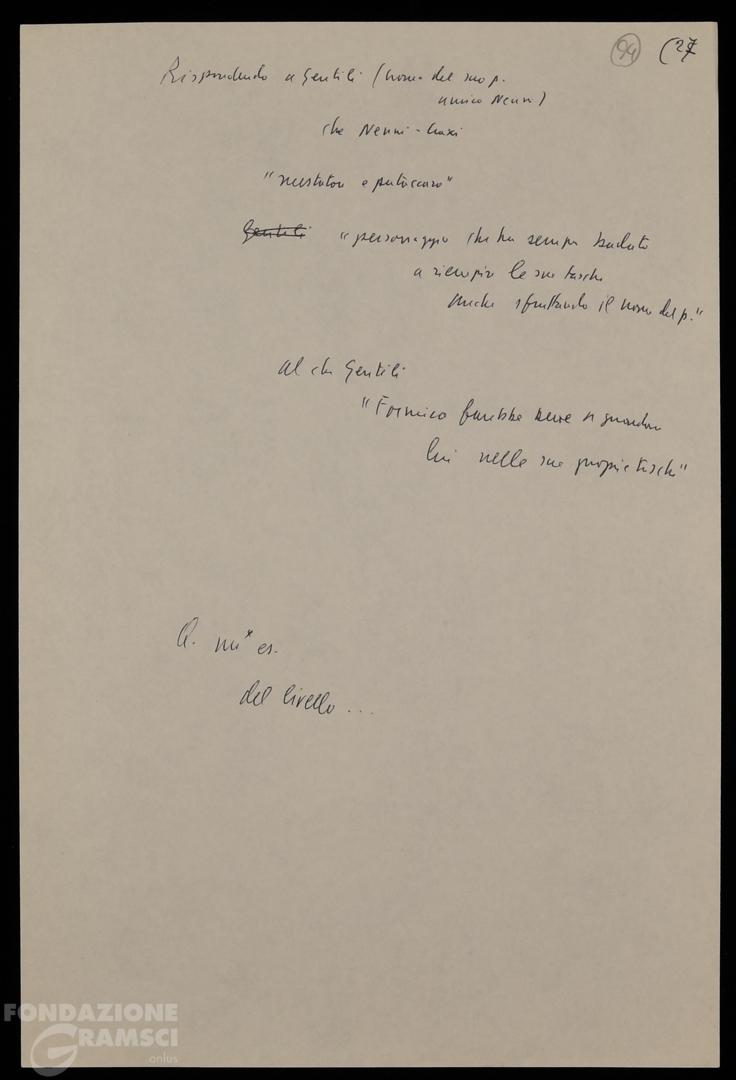 94 (27
Rispondendo a Gentili (nome del suo p.
amico Nenni)
che Nenni - Craxi
" e
Gentili "personaggio che ha sempre badato
a riempire le sue tasche
anche sfruttando il nome del p."
al che Gentili
"Formica farebbe bene a guardare
lui nelle sue proprie tasche"
Q. es.
del livello...
FONDAZIONE
GRAMSCI
onlus